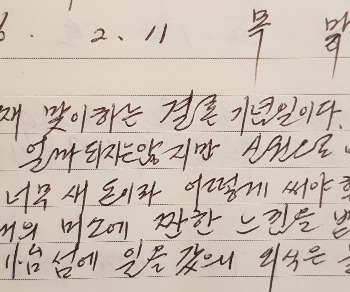 6. 2. 11 목 맑
째 맞이하는 결혼 기념일이다.
얼마 되지는 않지만 신권으로
너무 새 돈이라 어떻게 써야 할
내의 미소에 짠한 느낌을 받
섬에 일몰 갔으니 외식은